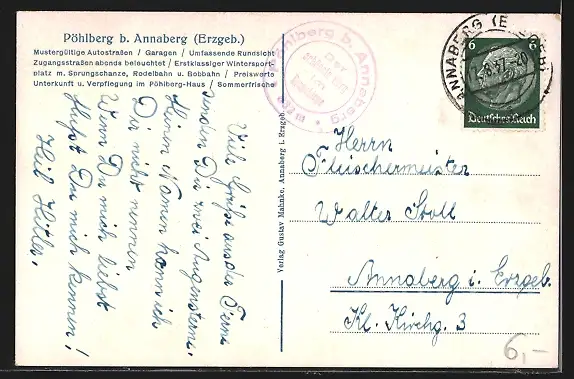 Pöhlberg b. Annaberg (Erzgeb.)
Mustergültige Autostraßen / Garagen / Umfassende Rundsicht
Zugangsstraßen abends beleuchtet / Erstklassiger Wintersport-
platz m. Sprungschanze, Rodelbahn u. Bobbahn / Preiswerte
Unterkunft u. Verpflegung im Pöhlberg-Haus / Sommerfrische
Viele Grüße aus der Ferne
senden Dir zwei Augensterne.
Ihren Namen kann ich
Dir nicht nennen
Wenn Du mich liebst
mußt Du mich kennen!
Heil Hitler.
Verlag Gustav Mahnke, Annaberg i. Erzgeb.
Pöhlberg b. Annaberg
ANNABERG (ERZGEB)
6 6
Deutsches Reich
Herrn
Fleischermeister
Walter Stoll
Annaberg i. Erzgeb.
Kl. Kirchg. 3
6,-